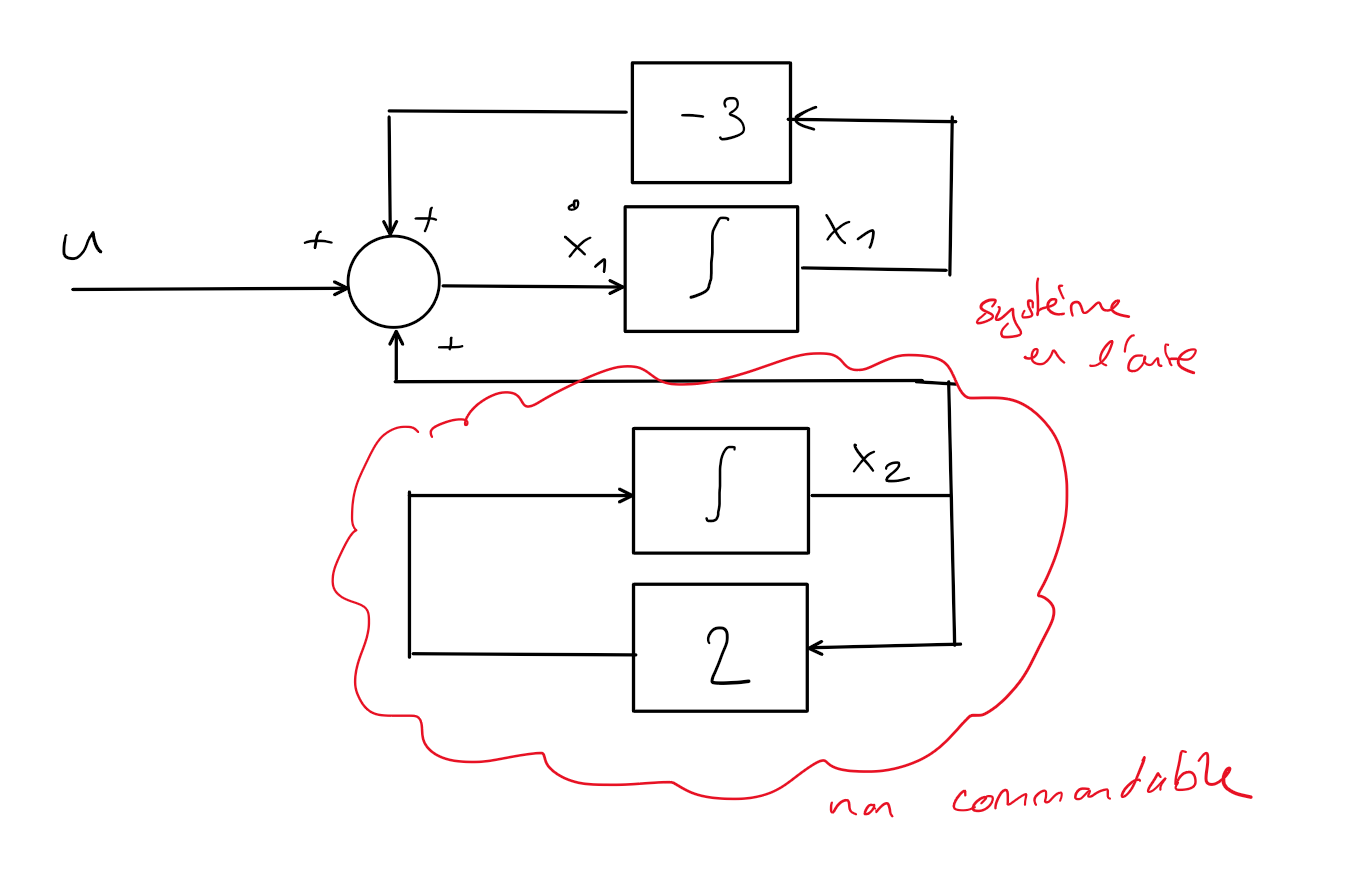 -3
+
u
+
ẋ₁
∫
x₁
+
système
en l'aire
∫
x₂
2
non commandable